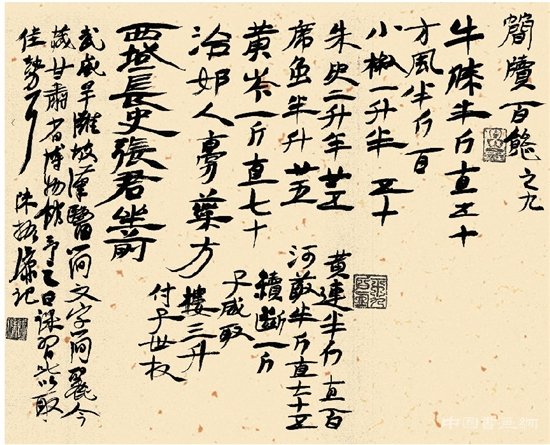 簡牘百態之九
牛膝半斤直五十
方風半斤百
小椒一升半五十
朱臾二升半廿五
席虫半升廿五
黄芩一斤直七十
治邯人膏藥方
黄連半斤直百
河菆半斤直七十五
續斷一斤
子威取
樓三升
付子卅枚
西城長史張君坐前
武威旱灘坡漢醫簡文字簡麗今
藏甘肅省博物館予日課習此以取
佳勢 陳濂記